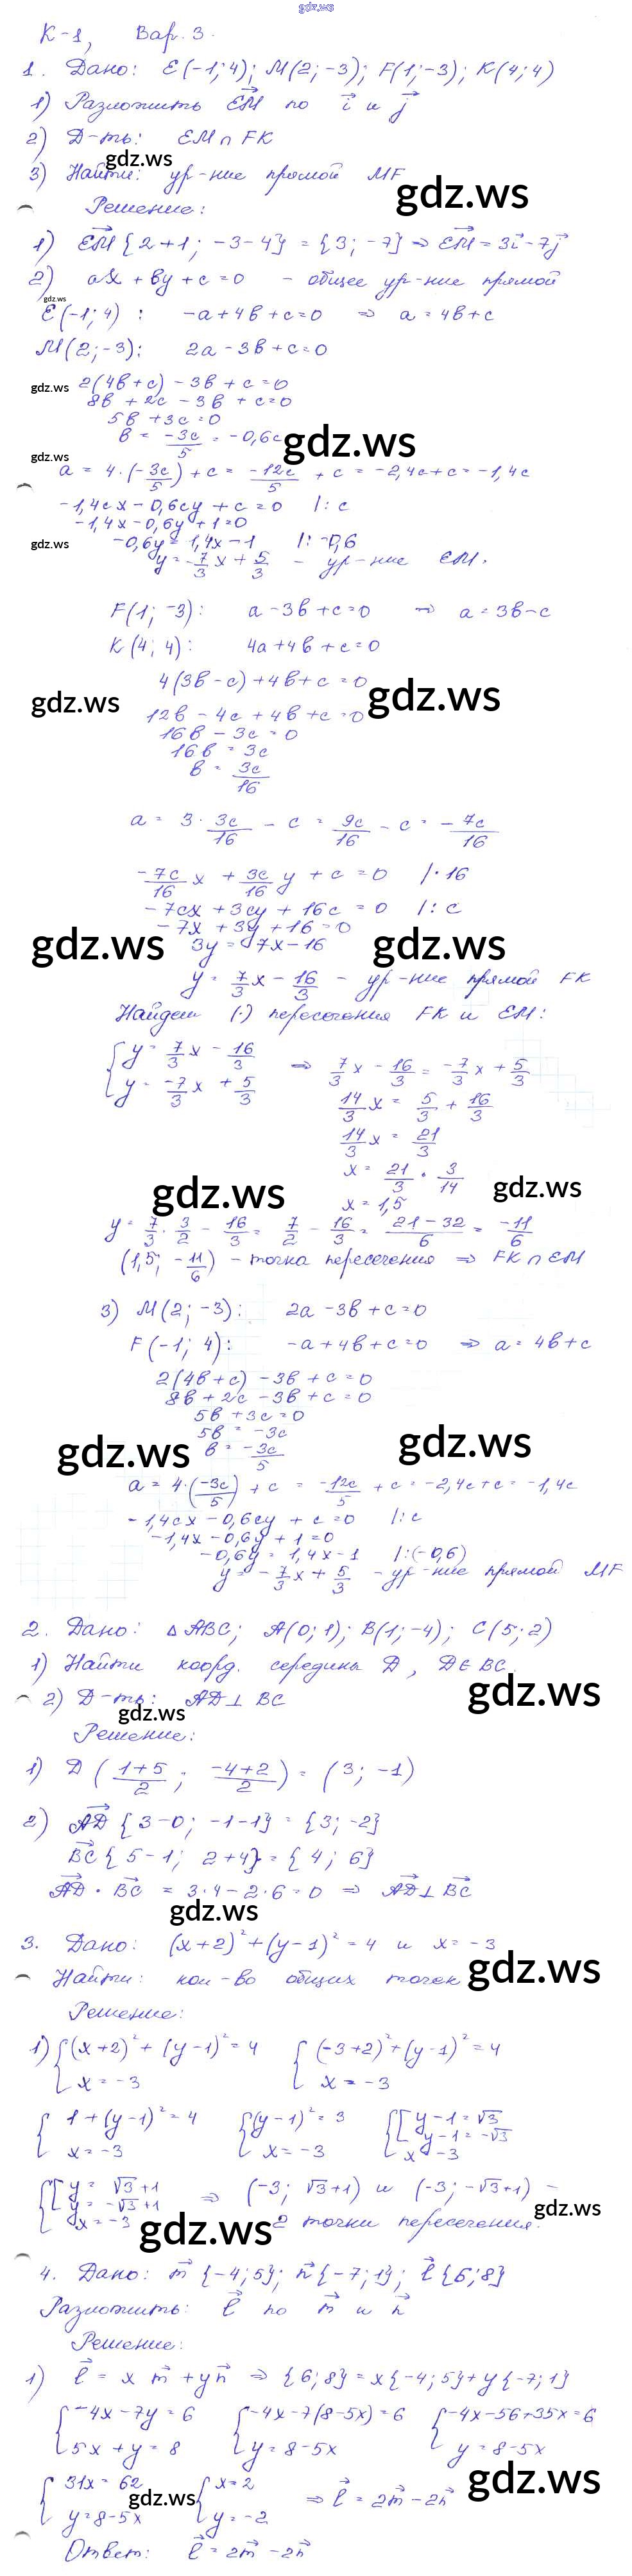 gdz.ws
К-1, Вар. 3.
1. Дано: E(-1;4); M(2;-3); F(1;-3); K(4;4)
1) Разложить EM по i и j
2) Д-ть: EM ∩ FK
gdz.ws
3) Найти: ур-ние прямой MF
gdz.ws
Решение:
1) EM {2+1; -3-4} = {3; -7} ⇒ EM = 3i - 7j
2) ax + by + c = 0 - общее ур-ние прямой
gdz.ws
E(-1;4) : -a+4b+c=0 ⇒ a=4b+c
M(2;-3): 2a-3b+c=0
gdz.ws 2(4b+c) - 3b + c = 0
8b + 2c - 3b + c = 0
5b + 3c = 0
b = -3c/5 = -0,6c
gdz.ws
gdz.ws
a = 4·(-3c/5) + c = -12c/5 + c = -2,4c+c = -1,4c
-1,4cx - 0,6cy + c = 0 |: c
-1,4x - 0,6y + 1 = 0
gdz.ws -0,6y = 1,4x - 1 |: -0,6
y = -7/3 x + 5/3 - ур-ние EM.
F(1; -3): a - 3b + c = 0 ⇒ a = 3b - c
K(4; 4): 4a + 4b + c = 0
4(3b - c) + 4b + c = 0
gdz.ws gdz.ws
12b - 4c + 4b + c = 0
16b - 3c = 0
16b = 3c
b = 3c/16
a = 3 · 3c/16 - c = 9c/16 - c = -7c/16
-7c/16 x + 3c/16 y + c = 0 |·16
-7cx + 3cy + 16c = 0 |: c
-7x + 3y + 16 = 0
gdz.ws 3y = 7x - 16 gdz.ws
y = 7/3 x - 16/3 - ур-ние прямой FK
Найдем (·) пересечения FK и EM:
{ y = 7/3 x - 16/3 ⇒ 7/3 x - 16/3 = -7/3 x + 5/3
{ y = -7/3 x + 5/3
14/3 x = 5/3 + 16/3
14/3 x = 21/3
x = 21/3 · 3/14
gdz.ws gdz.ws
x = 1,5
y = 7/3 · 3/2 - 16/3 = 7/2 - 16/3 = 21-32/6 = -11/6
(1,5; -11/6) - точка пересечения ⇒ FK ∩ EM
3) M(2; -3): 2a - 3b + c = 0
F(-1; 4): -a+4b+c=0 ⇒ a=4b+c
2(4b+c) - 3b + c = 0
8b + 2c - 3b + c = 0
5b + 3c = 0
5b = -3c
b = -3c/5
gdz.ws gdz.ws
a = 4·(-3c/5) + c = -12c/5 + c = -2,4c+c = -1,4c
-1,4cx - 0,6cy + c = 0 |: c
-1,4x - 0,6y + 1 = 0
-0,6y = 1,4x - 1 |: (-0,6)
y = -7/3 x + 5/3 - ур-ние прямой MF
2. Дано: △ABC; A(0; 1); B(1; -4); C(5; 2)
1) Найти коорд. середины D, D∈BC.
gdz.ws
2) Д-ть: AD ⊥ BC
gdz.ws
Решение:
1) D (1+5/2; -4+2/2) = (3; -1)
2) AD {3-0; -1-1} = {3; -2}
BC {5-1; 2+4} = {4; 6}
AD · BC = 3·4 - 2·6 = 0 ⇒ AD ⊥ BC
gdz.ws
3. Дано: (x+2)² + (y-1)² = 4 и x = -3
Найти: кол-во общих точек
gdz.ws
Решение:
1) { (x+2)² + (y-1)² = 4 { (-3+2)² + (y-1)² = 4
{ x = -3 { x = -3
{ 1 + (y-1)² = 4 { (y-1)² = 3 { [ y-1 = √3
{ x = -3 { x = -3 { [ y-1 = -√3
{ x = -3
{ [ y = √3+1 ⇒ (-3; √3+1) и (-3; -√3+1) -
{ [ y = -√3+1
{ x = -3 2 точки пересечения.
gdz.ws gdz.ws
4. Дано: m {-4; 5}; n {-7; 1}; l {6; 8}
Разложить: l по m и n
Решение:
1) l = x m + y n ⇒ {6; 8} = x{-4; 5} + y{-7; 1}
{ -4x - 7y = 6 { -4x - 7(8-5x) = 6 { -4x - 56 + 35x = 6
{ 5x + y = 8 { y = 8-5x { y = 8-5x
gdz.ws
{ 31x = 62 { x = 2 ⇒ l = 2m - 2n
{ y = 8-5x { y = -2
gdz.ws
Ответ: l = 2m - 2n